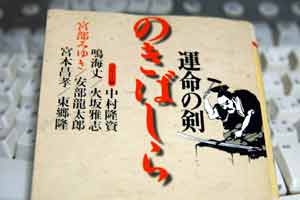 運命の剣
のきばしら
中村隆資
鳴海丈/火坂雅志
宮部みゆき/安部龍太郎
宮本昌孝/東郷隆